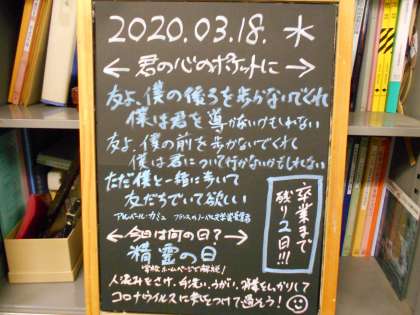 2020.03.18. 水
← 君の心のポケットに →
友よ、僕の後ろを歩かないでくれ
僕は君を導かないかもしれない
友よ、僕の前を歩かないでくれ
僕は君について行かないかもしれない
ただ僕と一緒に歩いて
友だちでいて欲しい
アルベール・カミュ フランスのノーベル文学賞受賞者
← 今日は何の日? →
精霊の日
学校ホームページで解説!
人混みをさけ、手洗い、うがい、消毒をしっかりして
コロナウイルスに気をつけて過そう!
卒業まで
残り2日!!!